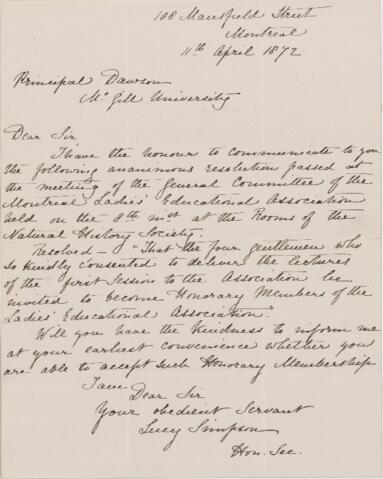 108 Mansfield Street
Montreal
11th April 1872
Principal Dawson
Mc Gill University
Dear Sir
I have the honour to communicate to you
the following unanimous resolution passed at
the meeting of the General Committee of the
Montreal Ladies' Educational Association
held on the 8th inst at the Rooms of the
Natural History Society.
Resolved – "That the four gentlemen who
so kindly consented to deliver the lectures
of the first Session to the Association be
invited to become Honorary Members of the
Ladies' Educational Association".
Will you have the kindness to inform me
at your earliest convenience whether you
are able to accept such Honorary Membership
I am
Dear Sir
Your obedient Servant
Lucy Simpson
Hon. Sec.